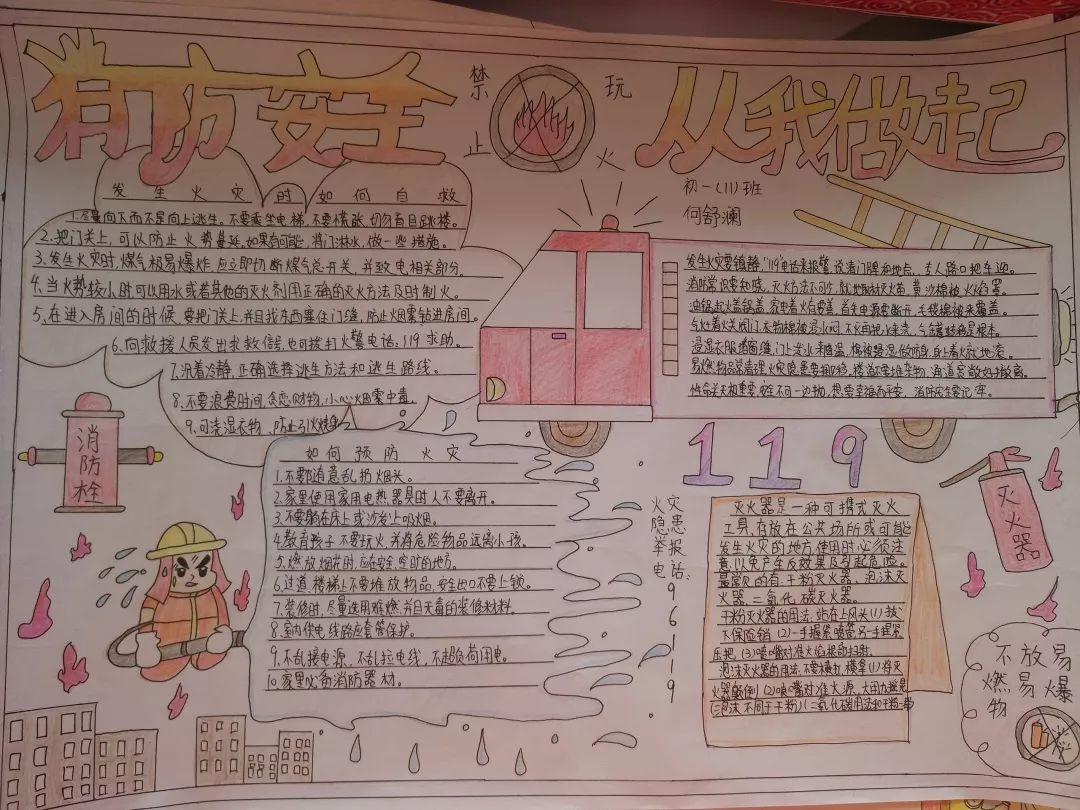 消防安全
禁止玩火
从我做起
初一(11)班
何舒澜
发生火灾时如何自救
1.尽量向下而不是向上逃生。不要乘坐电梯,不要慌张,切勿盲目跳楼。
2.把门关上,可以防止火势蔓延。如果有可能,将门淋水,做一些措施。
3.发生火灾时,煤气极易爆炸,应立即切断煤气总开关,并致电相关部分。
4.当火势较小时可以用水或者其他的灭火剂用正确的灭火方法及时制火。
5.在进入房间的时候,要把门关上,并且找东西塞住门缝,防止烟雾钻进房间。
6.向救援人员发出求救信号,也可拨打火警电话:119求助。
7.沉着冷静,正确选择逃生方法和逃生路线。
8.不要浪费时间,贪恋财物,小心烟雾中毒。
9.可浇湿衣物,防止引火烧身
发生火灾要镇静,"119"电话来报警,说清门牌和地点,专人路口把车迎。
消防常识要知晓,灭火方法不可少,就地取材灭火苗,黄沙棉被火焰罩。
油锅起火盖锅盖,家电着火有要害,首先电源要断开,毛毯棉被来覆盖。
气灶着火关阀门,衣物棉被浸水闷
浸湿衣服堵窗缝,门上泼水来降温,棉被
易燃物品常清理,火灾隐患要挪移,楼道不要堆杂物,通道宽敞好撤离。
性命关天极重要,要想幸福而平安,消防安全要记牢。
消防栓
如何预防火灾
1.不要随意乱扔烟头。
2.家里使用家用电热器具时人不要离开。
3.不要躺在床上或沙发上吸烟。
4.教育孩子不要玩火,并将危险物品远离小孩。
5.燃放烟花时,应在安全,空旷的地方。
6.过道,楼梯上不要堆放物品,安全出口不要上锁。
7.装修时,尽量选用难燃,并且无毒的装修材料。
8.室内供电线路应套管保护。
9.不乱接电源,不乱拉电线,不超负荷用电。
10.家里必备消防器材。
119
火灾隐患举报电话:96119
灭火器是一种可携式灭火
工具,存放在公共场所或可能
发生火灾的地方,使用时必须注
意,以免产生反效果及引起危险。
最常见的有:干粉灭火器、泡沫灭
火器、二氧化碳灭火器。
干粉灭火器的用法:站在上风头(1)拔
下保险销 (2)一手握紧喷管另一手握紧
压把 (3)喷嘴对准火焰根部扫射。
泡沫灭火器的用法:不要横扛,横拿(1)将灭
火器颠倒 (2)喷嘴对准火源,大田力摇晃
灭火器
不放易燃易爆物